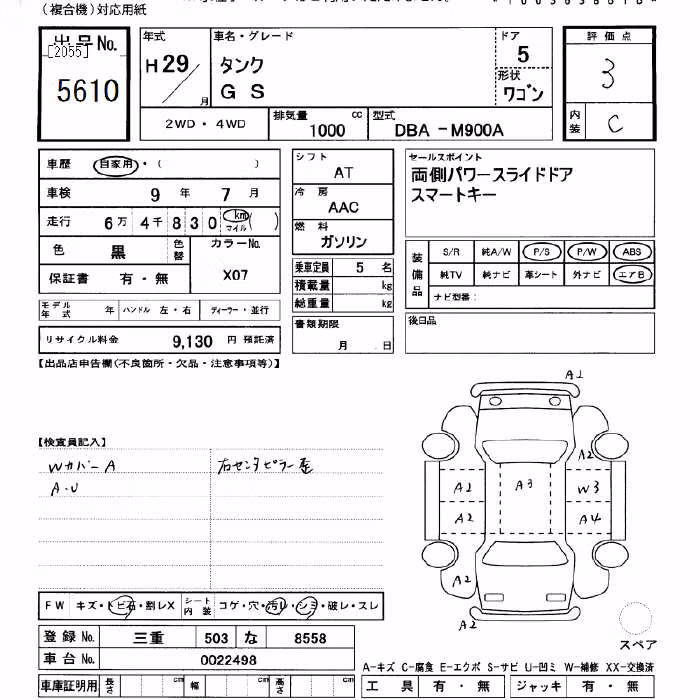 (複合機)対応用紙
出品No.
[2055]
5610
年式
H29/
月
車名・グレード
タンク
GS
ドア
5
形状
ワゴン
評価点
3
内装
C
2WD・4WD
排気量
1000
cc
型式
DBA -M900A
車歴 自家用・( )
車検 9年 7月
走行 6万4千830 km マイル ( )
色 黒 色替
カラーNo.
X07
保証書 有・無
モデル年式 年 ハンドル 左・右 ディーラー・並行
リサイクル料金 9,130 円 預託済
シフト
AT
冷房
AAC
燃料
ガソリン
乗車定員 5 名
積載量 kg
総重量 kg
書類期限
月 日
セールスポイント
両側パワースライドドア
スマートキー
装備品
S/R 純A/W P/S P/W ABS
純TV 純ナビ 革シート 外ナビ エアB
ナビ型番:
後日品
【出品店申告欄(不良箇所・欠品・注意事項等)】
【検査員記入】
Wカバー A
A・U
右センタピラー歪
A1
A2
A2
A3
W3
A2
A4
A2
A2
FW キズ・トビ石・割レX
シート内装 コゲ・穴・汚レ・シミ・破レ・スレ
登録No. 三重 503 な 8558
車台No. 0022498
車庫証明用 長さ cm 幅 cm 高さ cm
スペア
A-キズ C-腐食 E-エクボ S-サビ U-凹ミ W-補修 XX-交換済
工具 有・無 ジャッキ 有・無